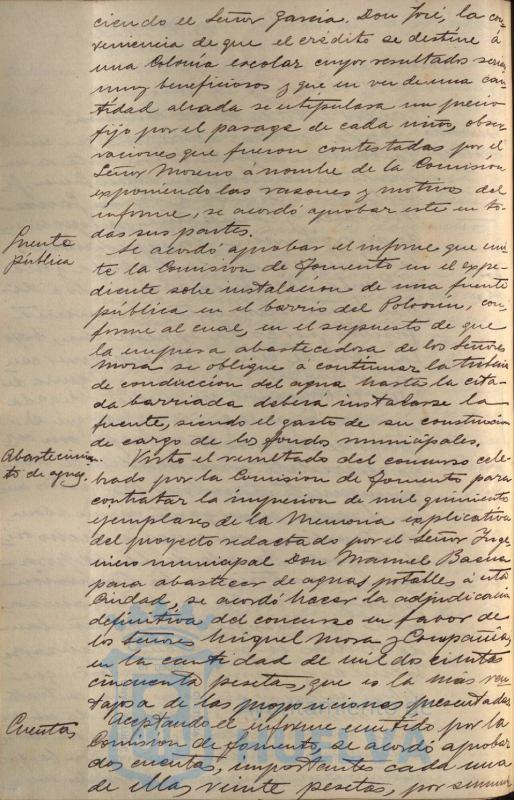 ciendo el Señor Garcia. Don José, la con-
veniencia de que el crédito se destine á
una Colonia escolar cuyos resultados serian
muy beneficiosos y que en vez de una can-
tidad alzada se estipulasa un precio
fijo por el pasage de cada niño, obser-
vaciones que fueron contestadas por el
Señor Moreno á nombre de la Comisión
exponiendo las razones y motivos del
informe, se acordó aprobar este en to-
das sus partes.
Fuente
pública
Se acordó aprobar el informe que emi-
te la Comision de Fomento en el expe-
diente sobre instalacion de una fuente
pública en el barrio del Polvorin, con-
forme al cual, en el supuesto de que
la empresa abastecedora de los Señores
Mora se oblique á continuar la tuberia
de conduccion del agua hasta la cita-
da barriada deberá instalarse la
fuente, siendo el gasto de su construccion
de cargo de los fondos municipales.
Abastecimien-
to de aguas.
Visto el resultado del concurso cele-
brado por la Comision de Fomento para
contratar la impresion de mil quinientos
ejemplares de la Memoria explicativa
del proyecto redactado por el Señor Inge-
niero municipal Don Manuel
para abastecer de aguas potables á esta
Ciudad, se acordó hacer la adjudicacion
definitiva del concurso en favor de
los Señores Miguel Mora y Compañia,
en la cantidad de mil dos cientas
cincuenta pesetas, que es la mas ven-
tajosa de las proposiciones presentadas.
Cuentas
Aceptando el informe emitido por la
Comision de Fomento, se acordó aprobar
dos cuentas, importantes cada una
de ellas veinte pesetas, por
HUELVA